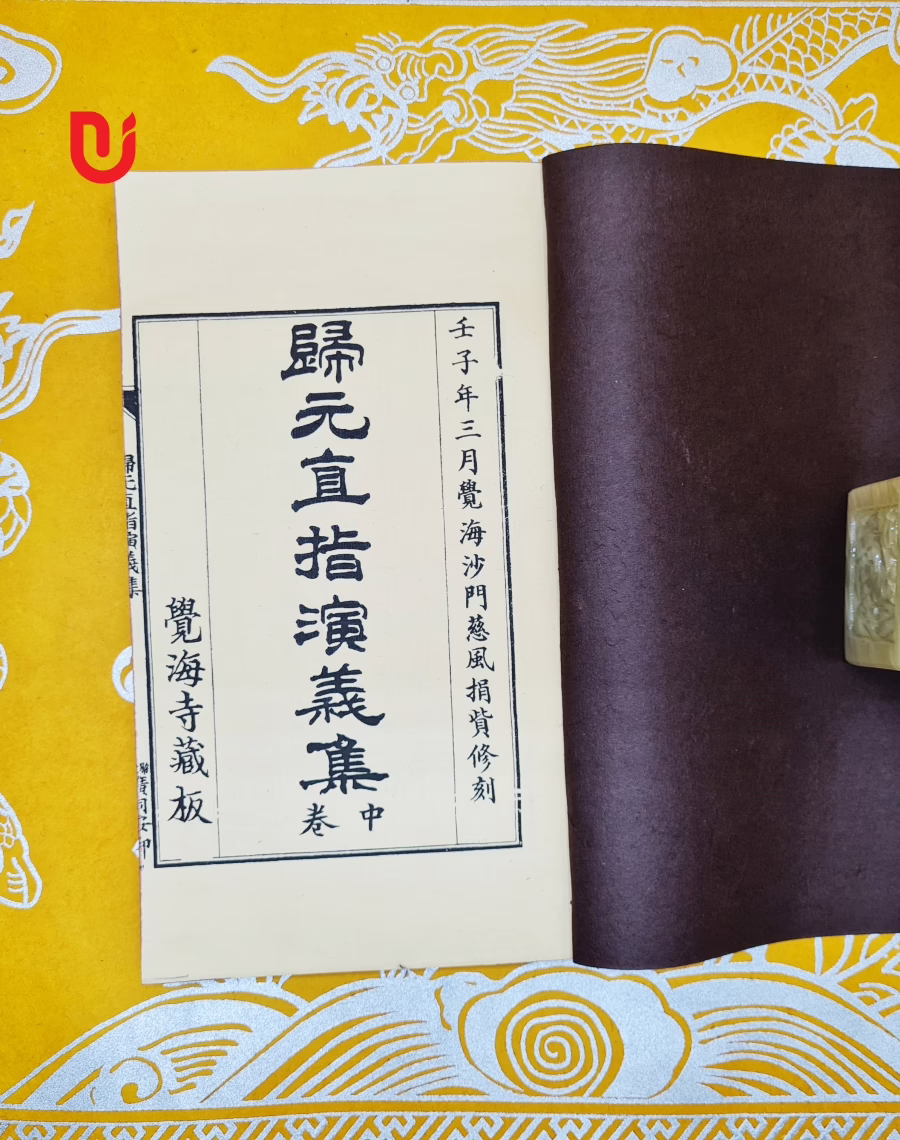 壬子年三月覺海沙門慈風捐貲修刻
歸元直指演義集
中卷
覺海寺藏板
歸元直指演義集